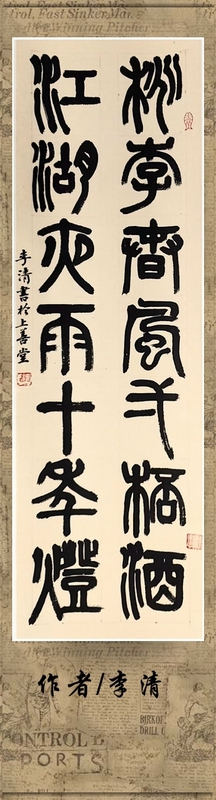 trol, Fast Sinker, Mar.
Winning Pitcher
桃李春風一杯酒
江湖夜雨十年燈
李清書於上善堂
Winning Pitcher
作者/李清
ONTROL
PORTS